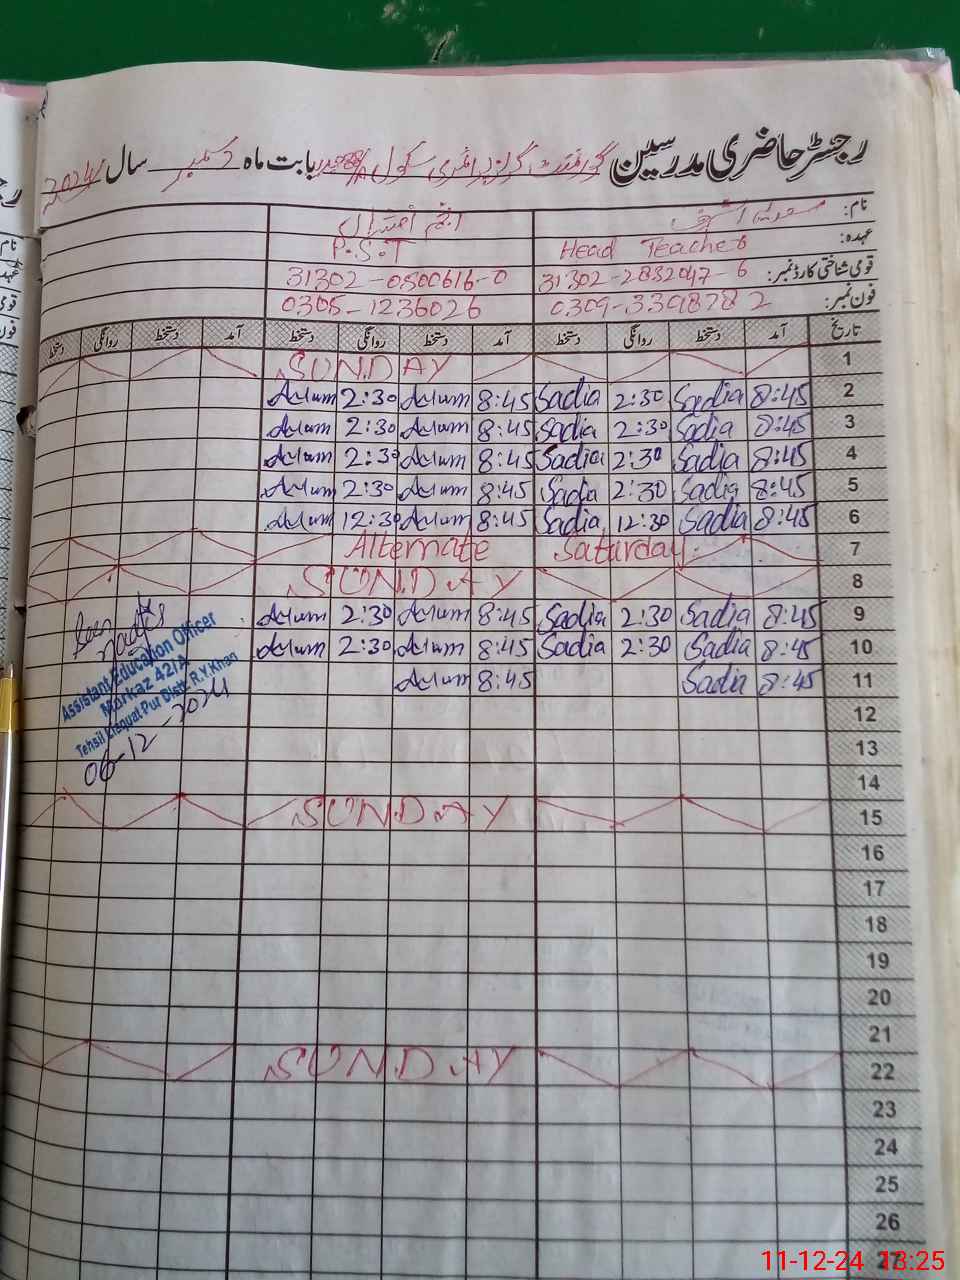 رجسٹر حاضری مدرسین گورنمنٹ گرلز پرائمری سکول بابت ماہ دسمبر سال 2024
نام: سعدیہ اشرف انجم
عہدہ: Head Teacher P.S.T
قومی شناختی کارڈ نمبر: 31302-2832047-6 31302-0500616-0
فون نمبر: 0309-3398782 0305-1236026
تاریخ آمد دستخط روانگی دستخط آمد دستخط روانگی دستخط آمد دستخط روانگی دستخط
1 SUNDAY
2 8:45 Sadia 2:30 Sadia 8:45 2:30
3 8:45 Sadia 2:30 Sadia 8:45 2:30
4 8:45 Sadia 2:30 Sadia 8:45 2:30
5 8:45 Sadia 2:30 Sadia 8:45 2:30
6 8:45 Sadia 12:30 Sadia 8:45 12:30
7 Alternate Saturday
8 SUNDAY
9 8:45 Sadia 2:30 Sadia 8:45 2:30
10 8:45 Sadia 2:30 Sadia 8:45 2:30
11 8:45 Sadia 8:45
12
13
14
15 SUNDAY
16
17
18
19
20
21
22 SUNDAY
23
24
25
26
27
Seen
Assistant Education Officer
Markaz 42/A
Tehsil Liaquat Pur Distt. R.Y.Khan
06-12-2024
نام
عہدہ
11-12-24 13:25